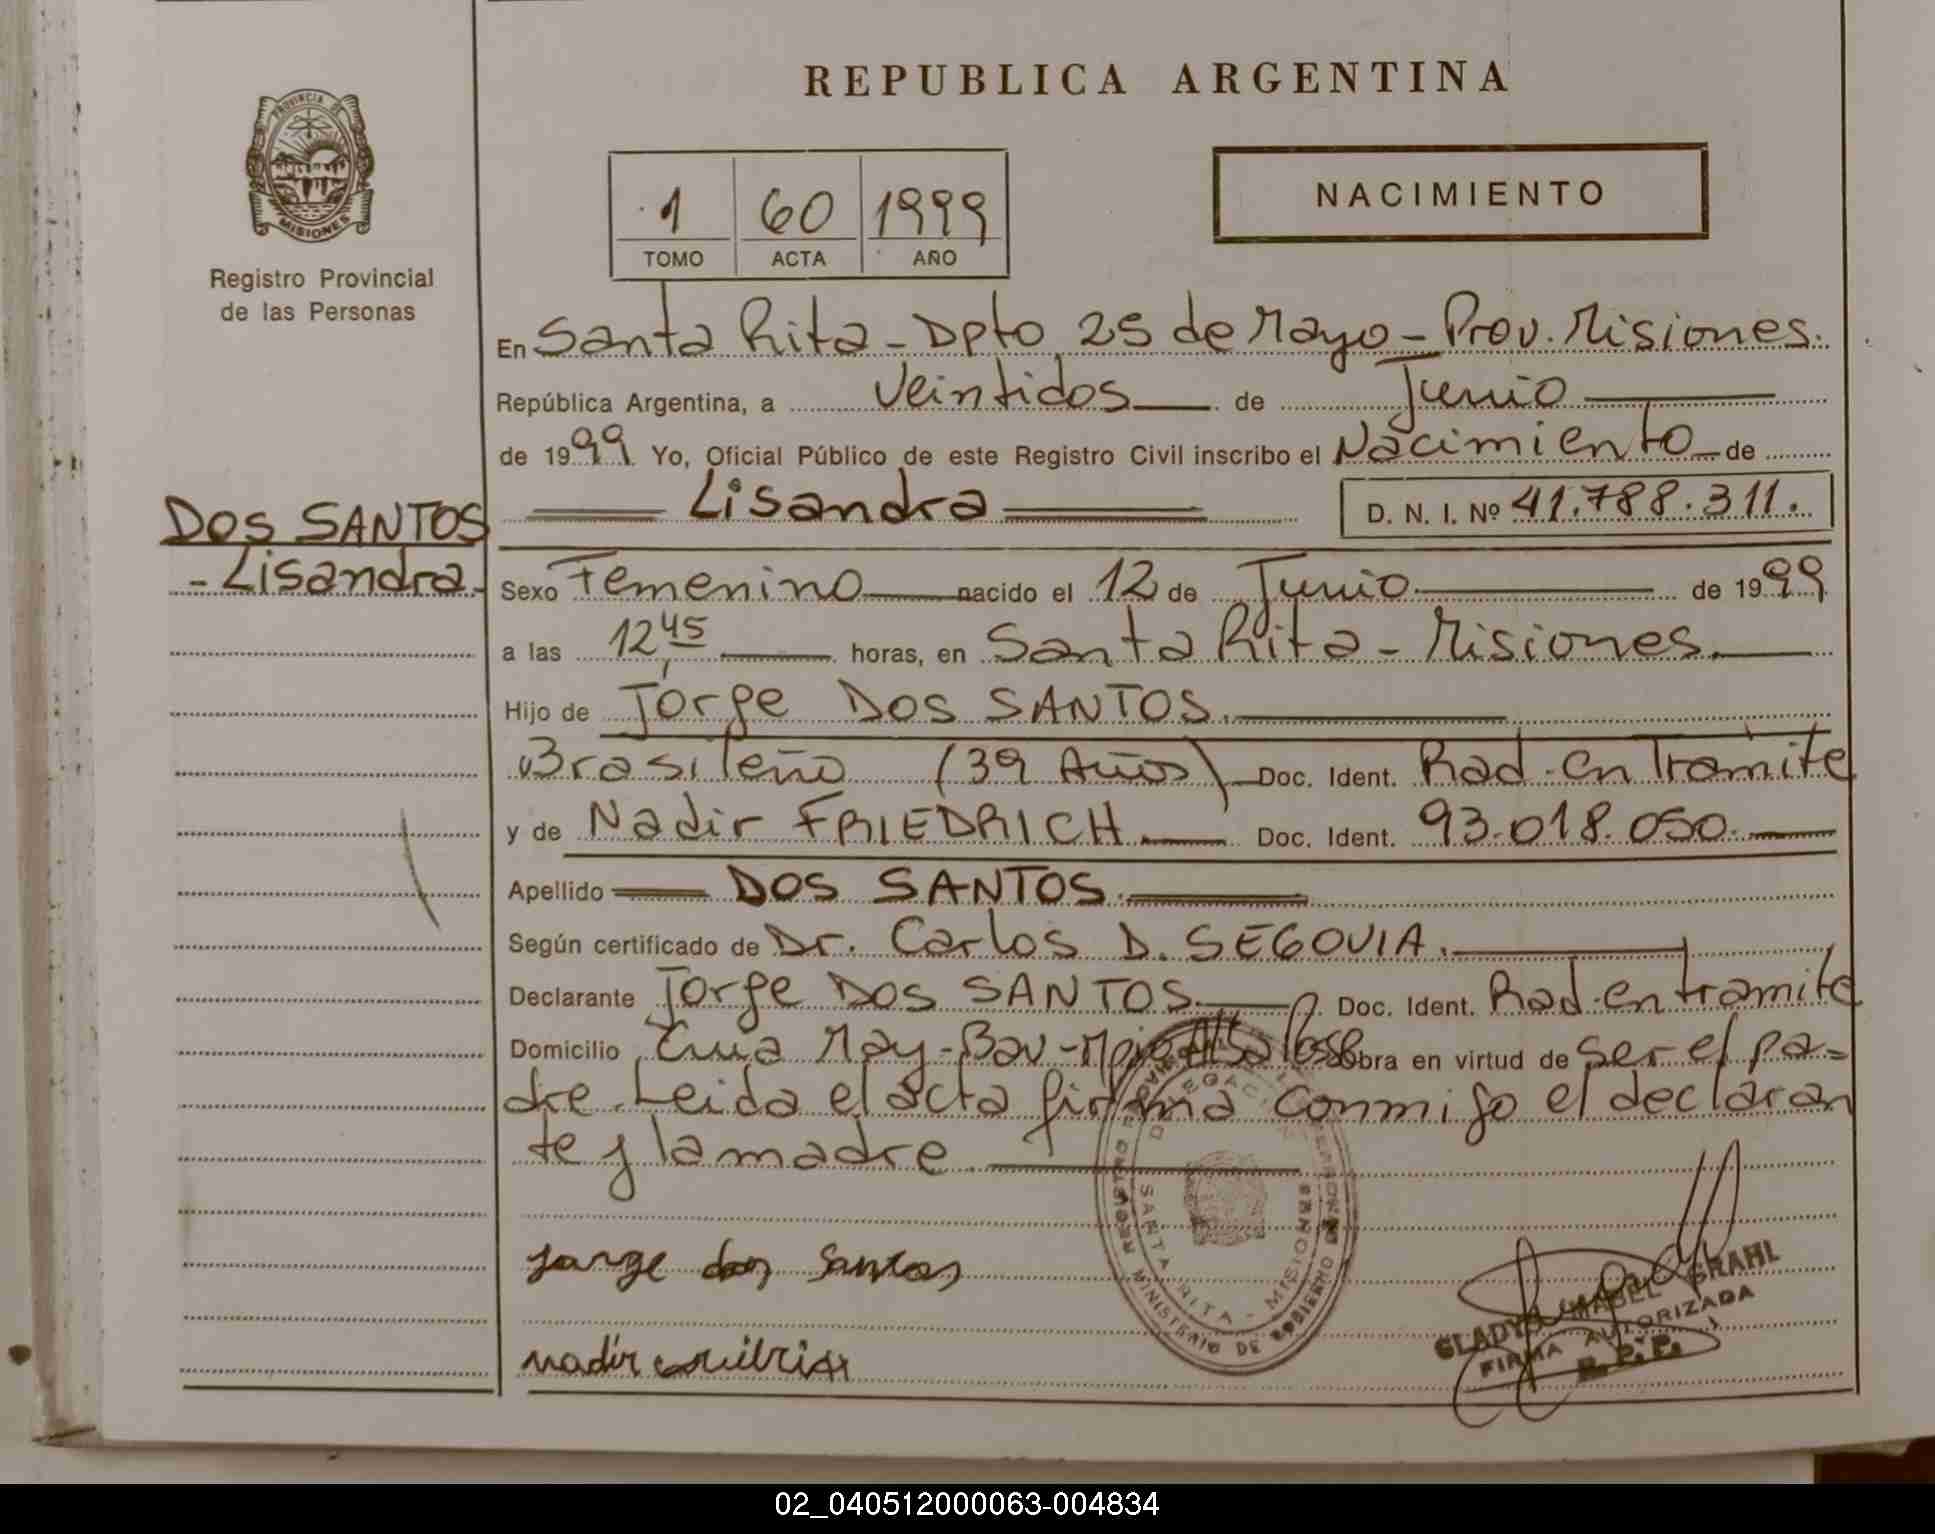 REPUBLICA ARGENTINA
PROVINCIA DE
MISIONES
Registro Provincial
de las Personas
NACIMIENTO
1 60 1999
TOMO ACTA AÑO
En Santa Rita - Dpto 25 de Mayo - Prov. Misiones.
República Argentina, a Veintidos de Junio
de 1999 Yo, Oficial Público de este Registro Civil inscribo el Nacimiento de
Lisandra D. N. I. Nº 41.788.311.
DOS SANTOS
- Lisandra -
Sexo Femenino nacido el 12 de Junio de 1999
a las 12 45 horas, en Santa Rita - Misiones.
Hijo de Jorge DOS SANTOS.
Brasileño (39 Años) Doc. Ident. Rad. en Tramite
y de Nadir FRIEDRICH. Doc. Ident. 93.018.050.
Apellido DOS SANTOS.
Según certificado de Dr. Carlos D. SEGOVIA.
Declarante Jorge DOS SANTOS. Doc. Ident. Rad. en tramite
Domicilio obra en virtud de ser el pa=
dre. Leida el acta firma conmigo el declaran
te y la madre.
SANTA RITA - MISIONES
MINISTERIO DE GOBIERNO
Jorge dos Santos
nadir
GLADYS MABEL GRAHL
FIRMA AUTORIZADA
R. P. P.
02_040512000063-004834